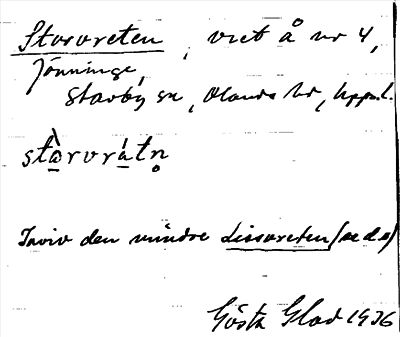 Storvreten, vret å nr 4,
Jönninge,
Stavby sn, Olands hd, Uppl.
stòrvrátn̥
Invid den mindre Lissvreten (se d o)
Gösta Glad 1936